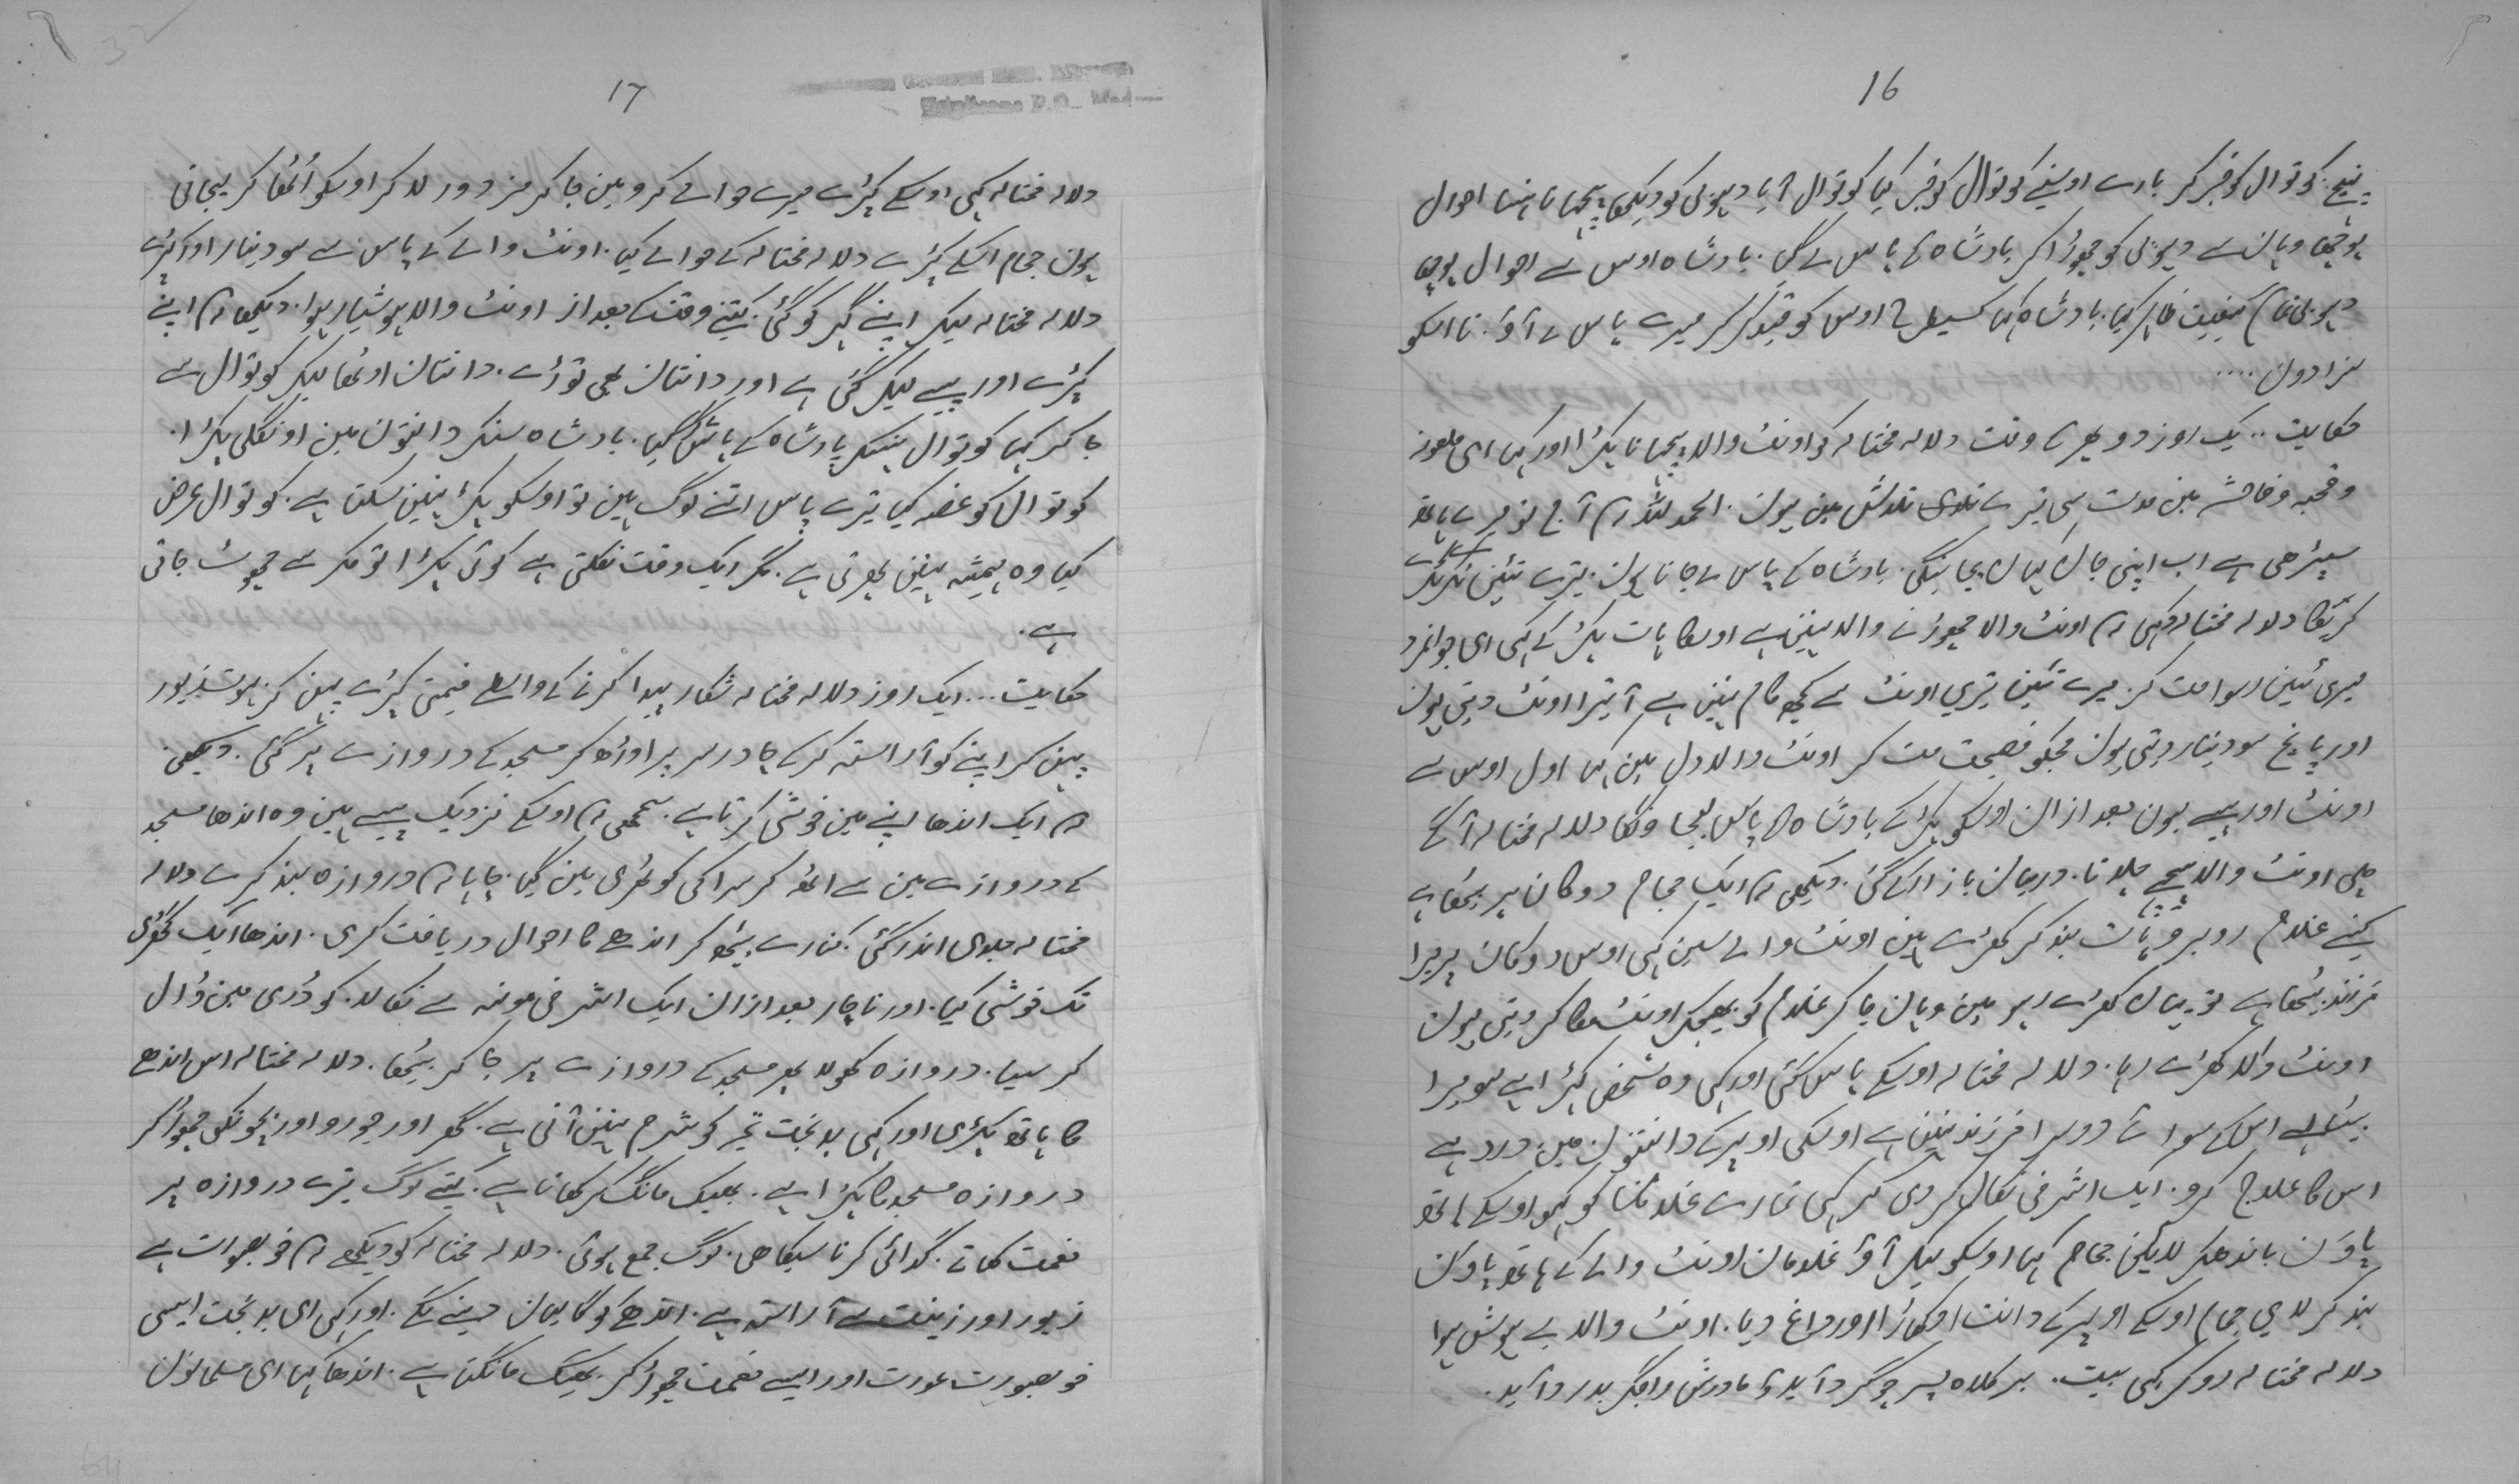 16
پنیچ. کوتوال کو خبر کر بارے اوسنے کوتوال کو خبر کیا کوتوال آیا دیوبی کو دیکھا پچھانا پنسا احوال
پوچھا وہان سے دیوبی کو چھوڑا کر بادشاہ کے پاس لے گی. بادشاہ اوس سے احوال پوچھا
دیوبی تمام کیفیت ظاہر کیا. بادشاہ کہا کسیطرح اوس کو قید کر کر میرے پاس لے آؤ. تا اسکو
سزا دون ....
حکایت .. یک اوز دوپہر کے وقت دلالہ مختالہ کو اونٹ والا پچھانا پکڑا اور کہا ای ملعونہ
و قحبہ و فاحشہ مین مدت سی تیرے تلاش مین ہون. الحمد للہ کہ آج تو میرے ہاتھ
سپڑھی ہے اب اپنی جان کہان بچائیگی. بادشاہ کے پاس لے جاتا ہون. تیرے تئین ٹکڑے ٹکڑے
کریگا دلالہ مختالہ دیکھی کہ اونٹ والا چھوڑنے والا نہین ہے اوسکا ہات پکڑ کے کہی ای جوانمرد
میری تئین رسوا مت کر. میرے تئین تیری اونٹ سے کچھ کام نہین ہے آ تیرا اونٹ دیتی ہون
اور پانچ سو دینار دیتی ہون مجکو فضیحت مت کر اونٹ والا دل مین کہا اول اوس سے
اونٹ اور پیسے لیون بعد ازان اوسکو پکڑ کے بادشاہ کے پاس لیجاونگا دلالہ مختالہ آگے
چلی اونٹ والا پیچھے چلوتا. درمیان بازار کے گئی. دیکھی کہ ایک حجام دوکان پر بیٹھا ہے
کتنے غلام روبرو ہات بند کر کھڑے ہین اونٹ والے سین کہی اوس دوکان پر میرا
فرزند بیٹھا ہے تو یہان کھڑے رہو مین وہان جا کر غلام کو بھیجکر اونٹ منگا کر دیتی ہون
اونٹ والا کھڑے رہا. دلالہ مختالہ اوسکے پاس گئی اور کہی وہ شخص کھڑا ہے سو میرا
بیٹا ہے اس کے سوائے دوسرا فرزند نہین ہے اوسکی اوپر کے دانتون مین درد ہے
اس کا علاج کرو. ایک اشرفی نکال کر دی کر کہی تمارے غلامان کو کہو اوسکے ہاتھ
پاون باندھکر لاویگین حجام کہا اوسکو لیکر آؤ غلامان اونٹ والے کے ہاتھ پاون
بند کر لائے حجام اوسکے اوپر کے دانت اوکھاڑا اور داغ دیا. اونٹ والا بے ہوش ہوا
دلالہ مختالہ رو کر کہی بیت. بر کلاہ پسر چو گرد آید تا مادرش را جگر بدرد آید.
17
دلالہ مختالہ کہی اوسکے کپڑے میرے حوالے کرو مین جا کر مزدور لا کر اوسکو اُٹھا کر لیجاتی
ہون حجام اسکے کپڑے دلالہ مختالہ کے حوالے کیا. اونٹ والے کے پاس سے سو دینار اور کپڑے
دلالہ مختالہ لیکر اپنے گہر کو گئی. کتنے وقت کے بعد از اونٹ والا ہوشیار ہوا. دیکھا کہ اپنے
کپڑے اور پیسے لیکر گئی ہے اور دانتان بھی توڑے. دانتان اوٹھا لیکر کوتوال سے
جا کر کہا کوتوال سنکر پادشاہ کے پاس گیا. بادشاہ سنکر دانتون مین اونگلی پکڑا.
کوتوال کو غضہ کیا تیرے پاس اتنے لوگ ہین تو اوسکو پکڑ نہین سکتا ہے. کوتوال عرض
کیا وہ ہمیشہ نہین پھرتی ہے. مگر ایک وقت نکلتی ہے کوئی پکڑا تو مکر سے چھوٹ جاتی
ہے.
حکایت ... ایک روز دلالہ مختالہ شکار پیدا کرنے کے واسطے قیمتی کپڑے پہن کر بہوت زیور
پہن کر اپنے کو آراستہ کر کے چادر سر پر اوڑھ کر مسجد کے دروازے پر گئی. دیکھی
کہ ایک اندھا اپنے مین خوشی کرتا ہے. سمجھی کہ اوسکے نزدیک پیسے ہین وہ اندھا مسجد
کے دروازے مین سے اٹھ کر سرا کی کوٹھری مین گیا. چاہا کہ دروازہ بند کرے دلالہ
مختالہ جلدی اندر گئی. کنارے بیٹھ کر اندھے کا احوال دریافت کری. اندھا ایک گھڑی
تک خوشی کیا. اور ناچار بعد ازان ایک اشرفی مونہ سے نکالا. کو دڑی مین ڈال
کر سیا. دروازہ کھولا پھر مسجد کے دروازے پر جا کر بیٹھا. دلالہ مختالہ اس اندھے
کا ہاتھ پکڑی اور کہی بدبخت تجر کو شرم نہین آتی ہے. گھر اور جورو اور بچونکی چھوڑ کر
دروازہ مسجد کا پکڑا ہے. بھیک مانگ کر کھاتا ہے. کتنے لوگ تیرے دروازہ پر
نعمت کھاتے. گدائی کرنا سیکا ھی. لوگ جمع ہوئی. دلالہ مختالہ کو دیکھے کہ خوبصورت ہے
زیور اور زینت سے آراستہ ہے. اندھے کو گالیان دینے لگے. اور کہی ای بدبخت ایسی
خوبصورت عورت اور ایسے نعمت چھوڑ کر. بھیک مانگتا ہے. اندھا کہا ای مسلمانون